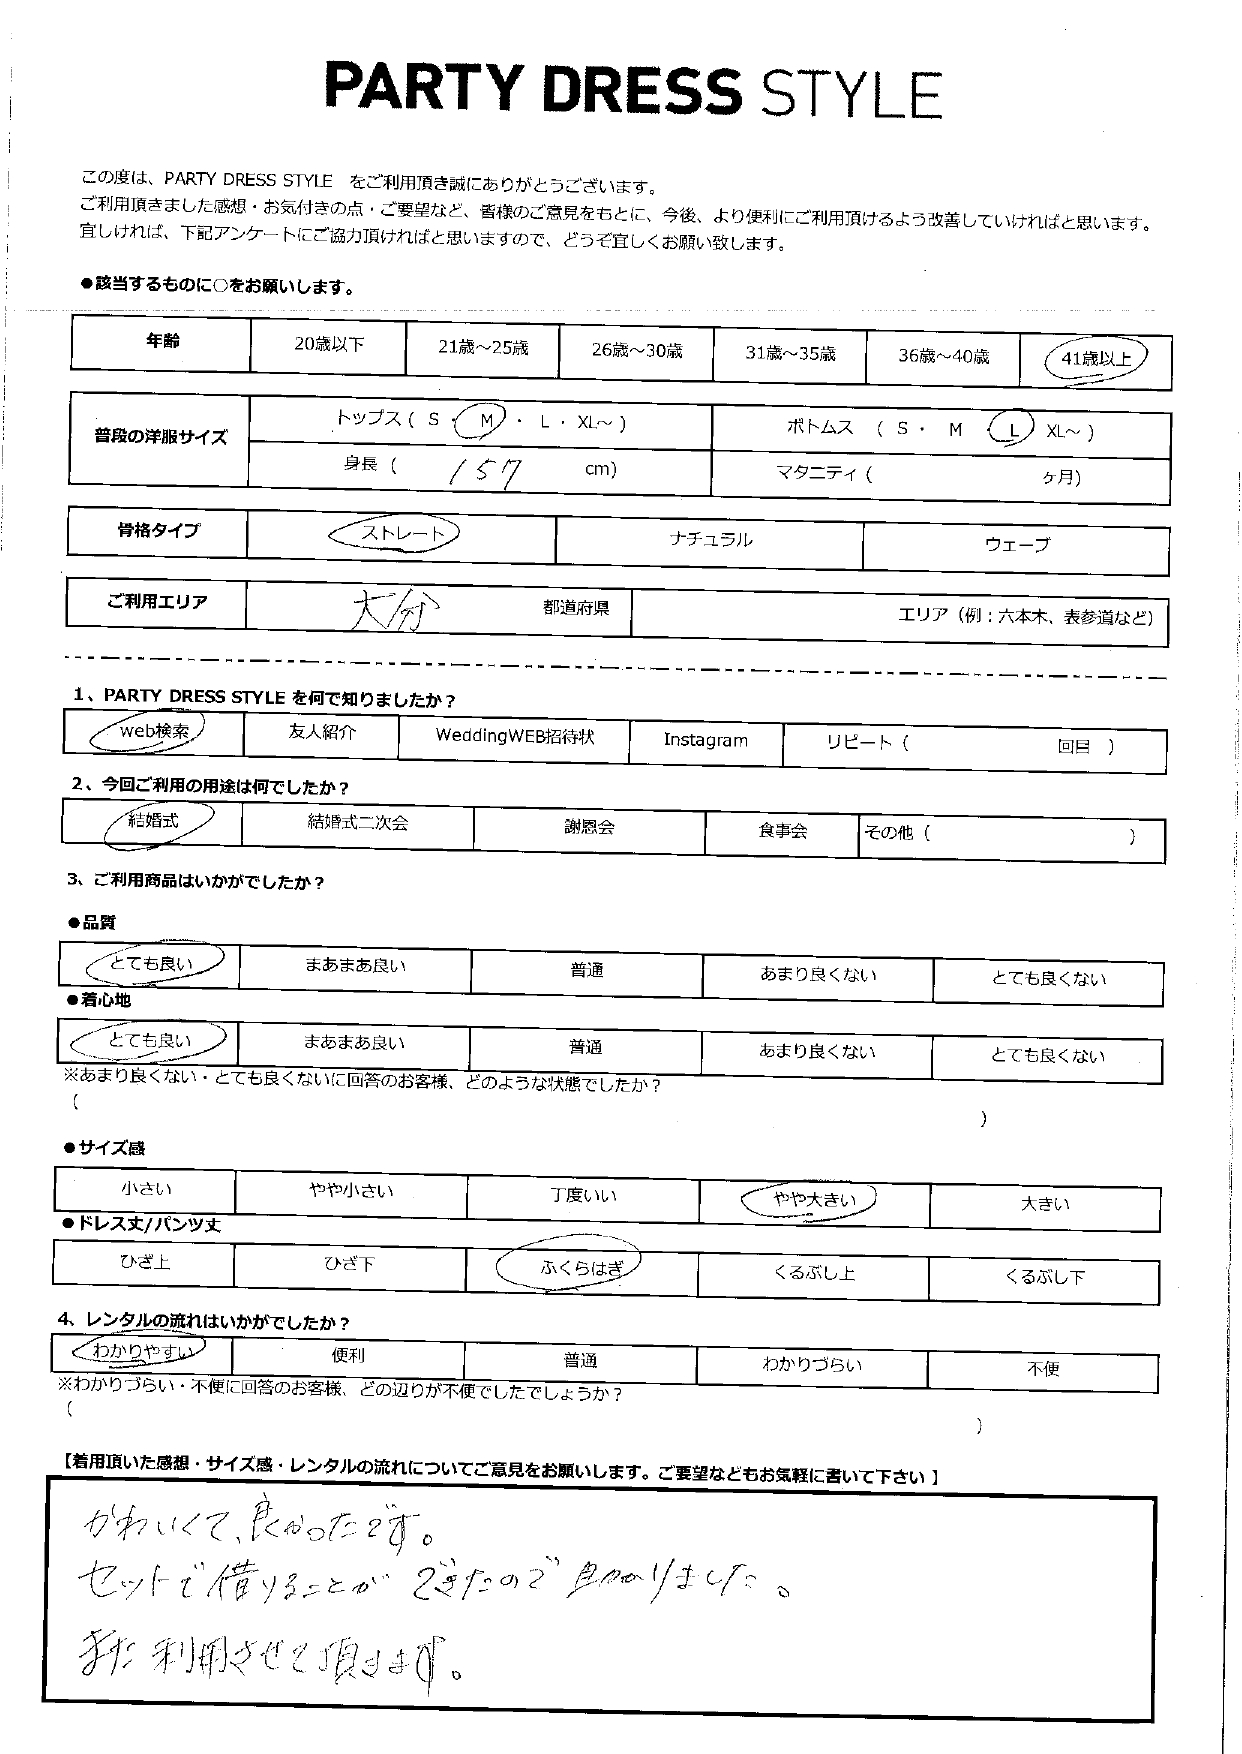 PARTY DRESS STYLE
この度は、PARTY DRESS STYLE をご利用頂き誠にありがとうございます。
ご利用頂きました感想・お気付きの点・ご要望など、皆様のご意見をもとに、今後、より便利にご利用頂けるよう改善していければと思います。
宜しければ、下記アンケートにご協力頂ければと思いますので、どうぞ宜しくお願い致します。
●該当するものに○をお願いします。
年齢 20歳以下 21歳～25歳 26歳～30歳 31歳～35歳 36歳～40歳 41歳以上
普段の洋服サイズ トップス ( S ・ M ・ L ・ XL～ ) ボトムス ( S ・ M L XL～ )
身長 ( 157 cm) マタニティ ( ヶ月)
骨格タイプ ストレート ナチュラル ウェーブ
ご利用エリア 大分 都道府県 エリア（例：六本木、表参道など）
1、PARTY DRESS STYLE を何で知りましたか？
web検索 友人紹介 WeddingWEB招待状 Instagram リピート ( 回目 )
2、今回ご利用の用途は何でしたか？
結婚式 結婚式二次会 謝恩会 食事会 その他 ( )
3、ご利用商品はいかがでしたか？
●品質
とても良い まあまあ良い 普通 あまり良くない とても良くない
●着心地
とても良い まあまあ良い 普通 あまり良くない とても良くない
※あまり良くない・とても良くないに回答のお客様、どのような状態でしたか？
( )
●サイズ感
小さい やや小さい 丁度いい やや大きい 大きい
●ドレス丈/パンツ丈
ひざ上 ひざ下 ふくらはぎ くるぶし上 くるぶし下
4、レンタルの流れはいかがでしたか？
わかりやすい 便利 普通 わかりづらい 不便
※わかりづらい・不便に回答のお客様、どの辺りが不便でしたでしょうか？
( )
【着用頂いた感想・サイズ感・レンタルの流れについてご意見をお願いします。ご要望などもお気軽に書いて下さい】
かわいくて、良かったです。
セットで借りることができたので助かりました。
また利用させて頂きます。